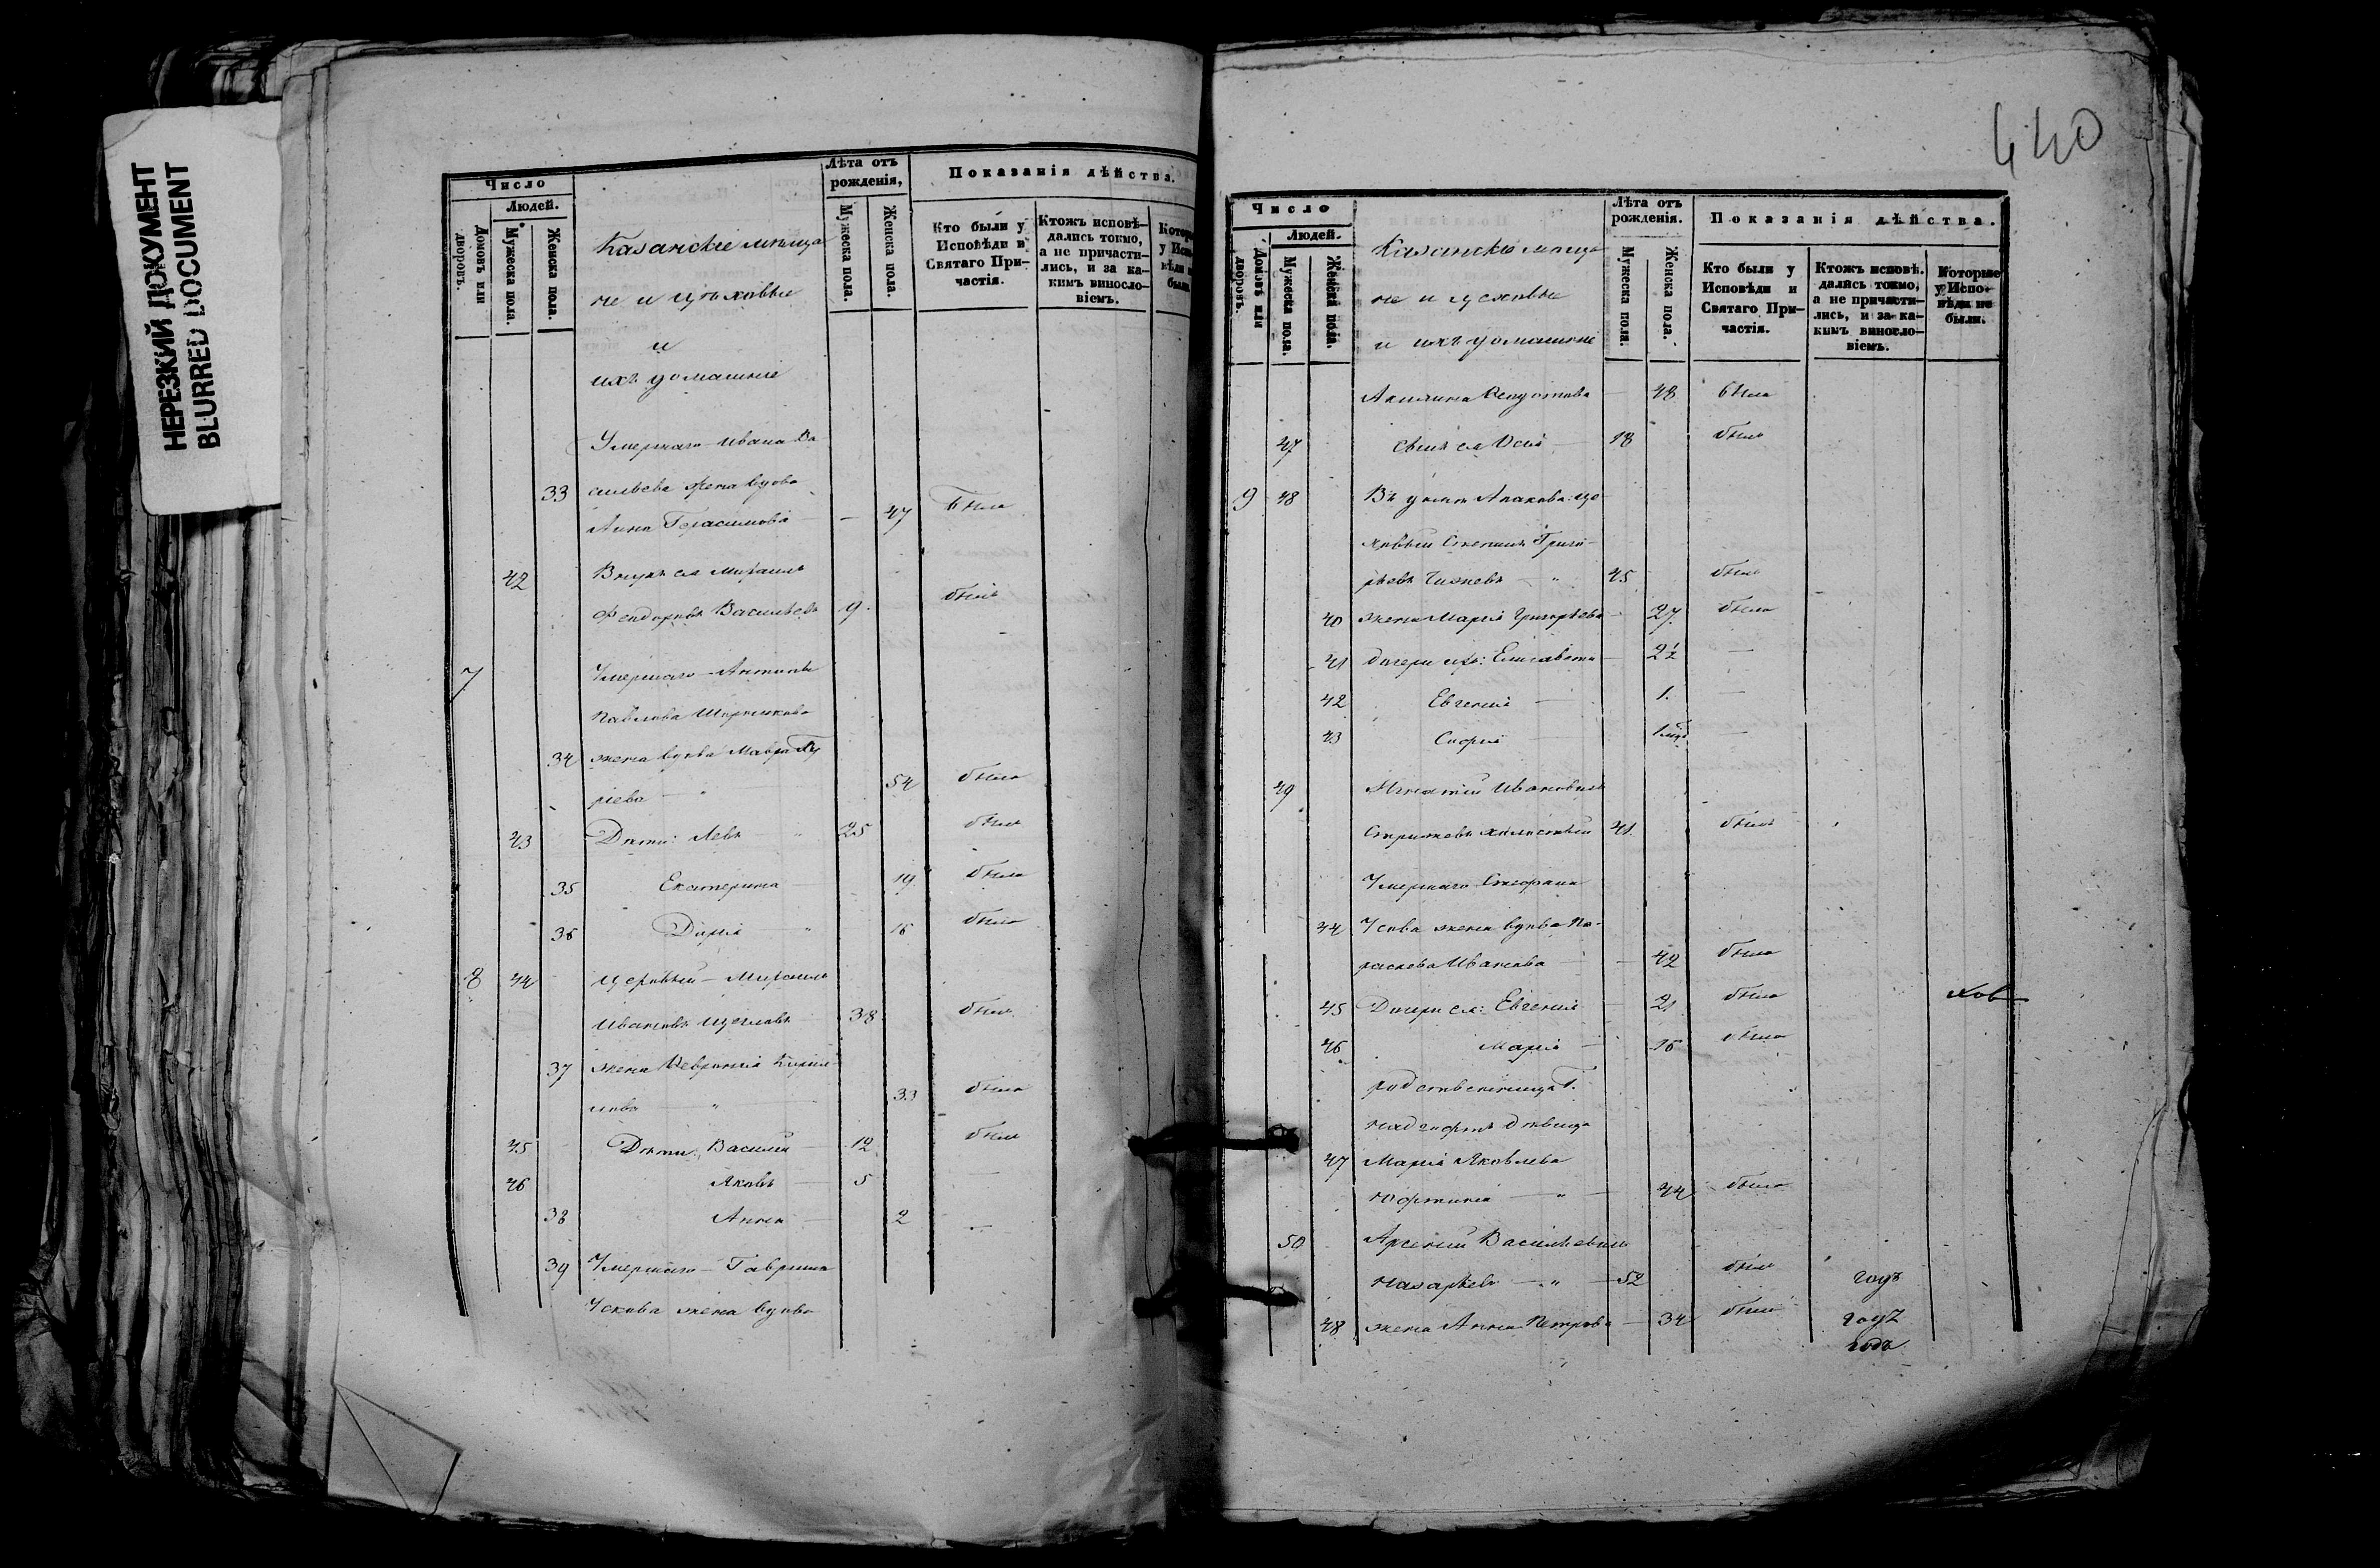 НЕРЕЗКИЙ ДОКУМЕНТ
BLURRED DOCUMENT
Число
Людей.
Домовъ или дворовъ.
Мужеска пола.
Женска пола.
Казанскіе мѣща
не и цѣховые
и
ихъ домашніе
Лѣта отъ рожденія,
Мужеска пола.
Женска пола.
Показанія дѣйства.
Кто были у Исповѣди и Святаго Причастія.
Ктожъ исповѣдались токмо, а не причастились, и за какимъ винословіемъ.
Умершаго Ивана Ва
33 сильева жена вдова
Анна Герасимова — 47 была
42 Внукъ ея Михаилъ
Федоровъ Васильевъ 9. былъ
7 Умершаго Антипы
Павлова
34 жена вдова Мавра
54 была
43 Дѣти: Левъ " 25 былъ
35 Екатерина 19 была
36 Дарія " 16 была
8 44 Цеховый Михаилъ
Ивановъ Щегловъ 38 былъ
37 жена Февронія Кирил
лова " 33 была
45 Дѣти: Василій 12 былъ
46 Яковъ 5 —
38 Анна 2 —
39 Умершаго Гавриила
Ускова жена вдова
440
Число
Людей.
Домовъ или дворовъ.
Мужеска пола.
Женска пола.
Казанскіе мѣща
не и цеховые
и ихъ домашніе
Лѣта отъ рожденія.
Мужеска пола.
Женска пола.
Показанія дѣйства.
Кто были у Исповѣди и Святаго Причастія.
Ктожъ исповѣдались токмо, а не причастились, и за какимъ винословіемъ.
Которые у Исповѣди не были.
Акилина Федотова — 48 была
47 Сынъ ея 18 былъ
9 48 Въ домѣ Апакова: це
ховый Степанъ Григо
рьевъ " 45 былъ
40 жена Марія Григорьева 27 была
41 дочери ихъ: Елисавета 2½ —
42 Евгенія 1. —
43 Софія 1 мѣс. —
49 Игнатій Ивановичъ
Стрижевъ холостый 41 былъ
Умершаго Стефана
44 Ускова жена вдова Па
раскева Иванова — 42 была
45 Дочери ея: Евгенія — 21 была
46 Марія — 16 была
родственница Г.
дѣвица
47 Марія Яковлева
" 44 была
50 Арсеній Васильевичъ
Назарьевъ " 52 былъ годъ
48 жена Анна Петрова — 34 была годъ
года